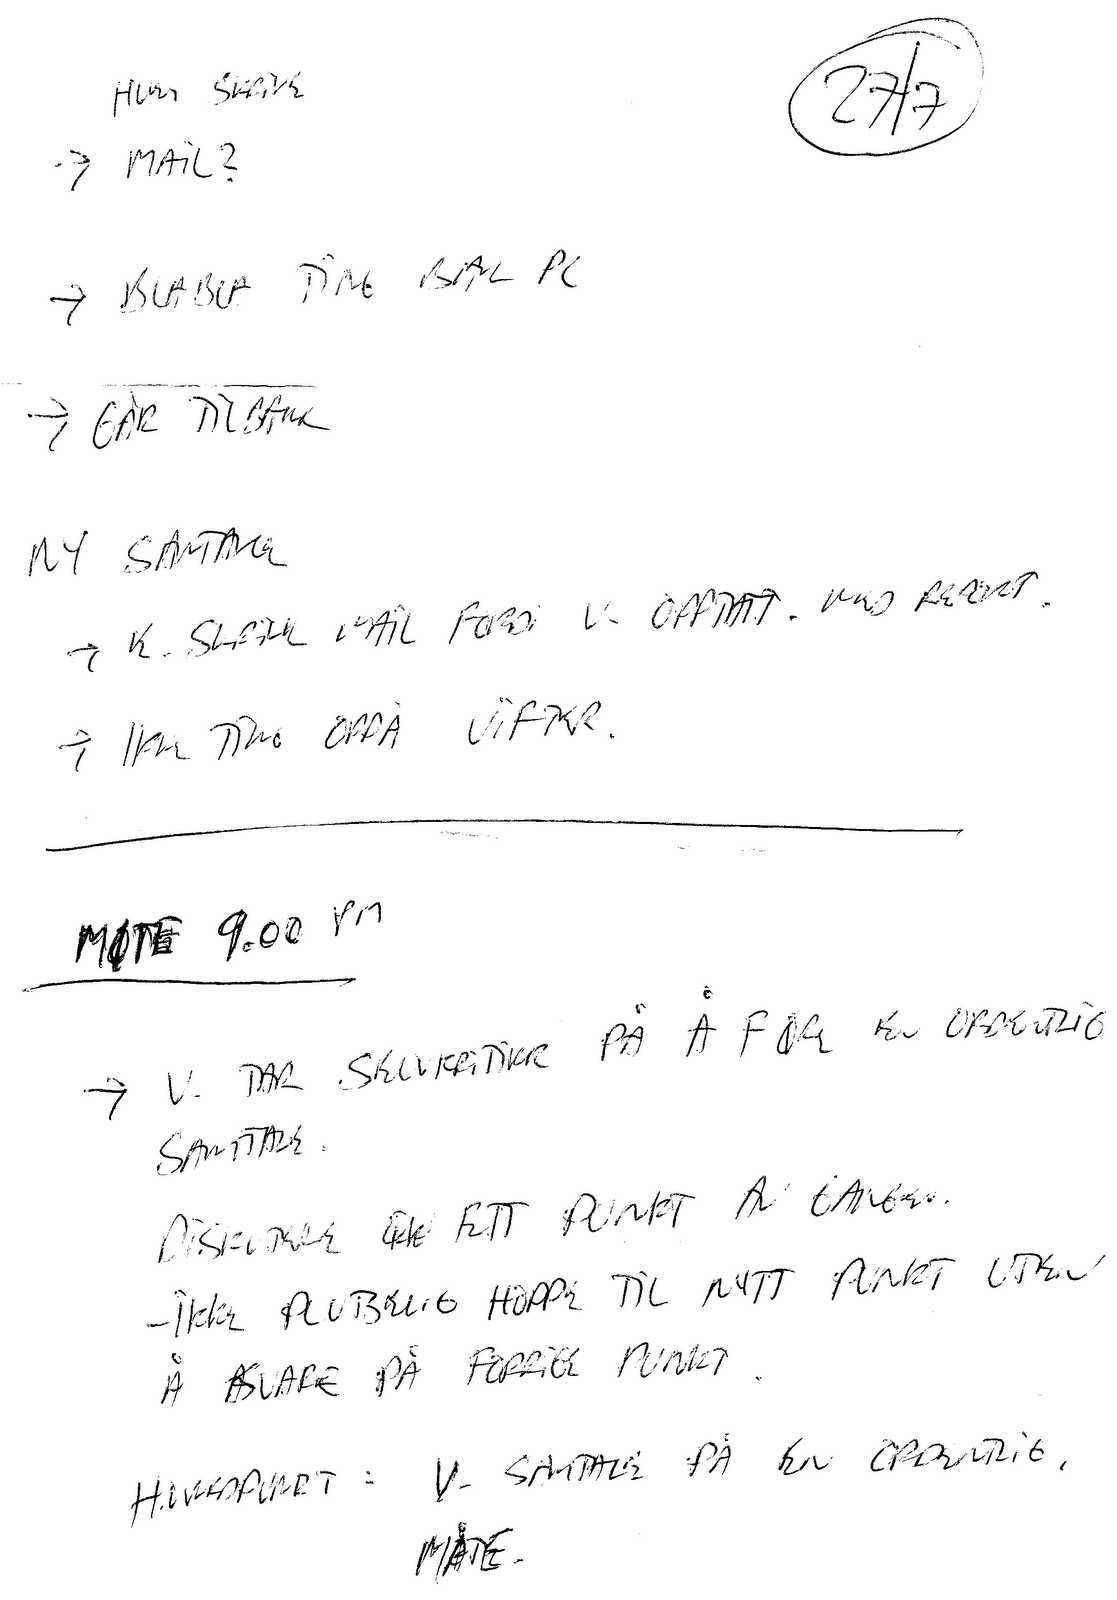 27/7
HVEM SKRIVE
→ MAIL?
→ BLABLA TIME BAK PC
→ GÅR TILBAKE
NY SAMTALE
→ K. SKRIVE MAIL FORDI V. OPPTATT. MED REPORT.
→ IKKE TING OPPÅ VIFTER.
MØTE 9.00 PM
→ V. TAR SELVKRITIKK PÅ Å FØRE EN ORDENTLIG
SAMTALE.
DISKUTERE ETT PUNKT AV GANGEN.
- IKKE PLUTSELIG HOPPE TIL NYTT PUNKT UTEN
Å SVARE PÅ FORRIGE PUNKT.
HOVEDPUNKT: V. SAMTALE PÅ EN ORDENTLIG.
MÅTE.